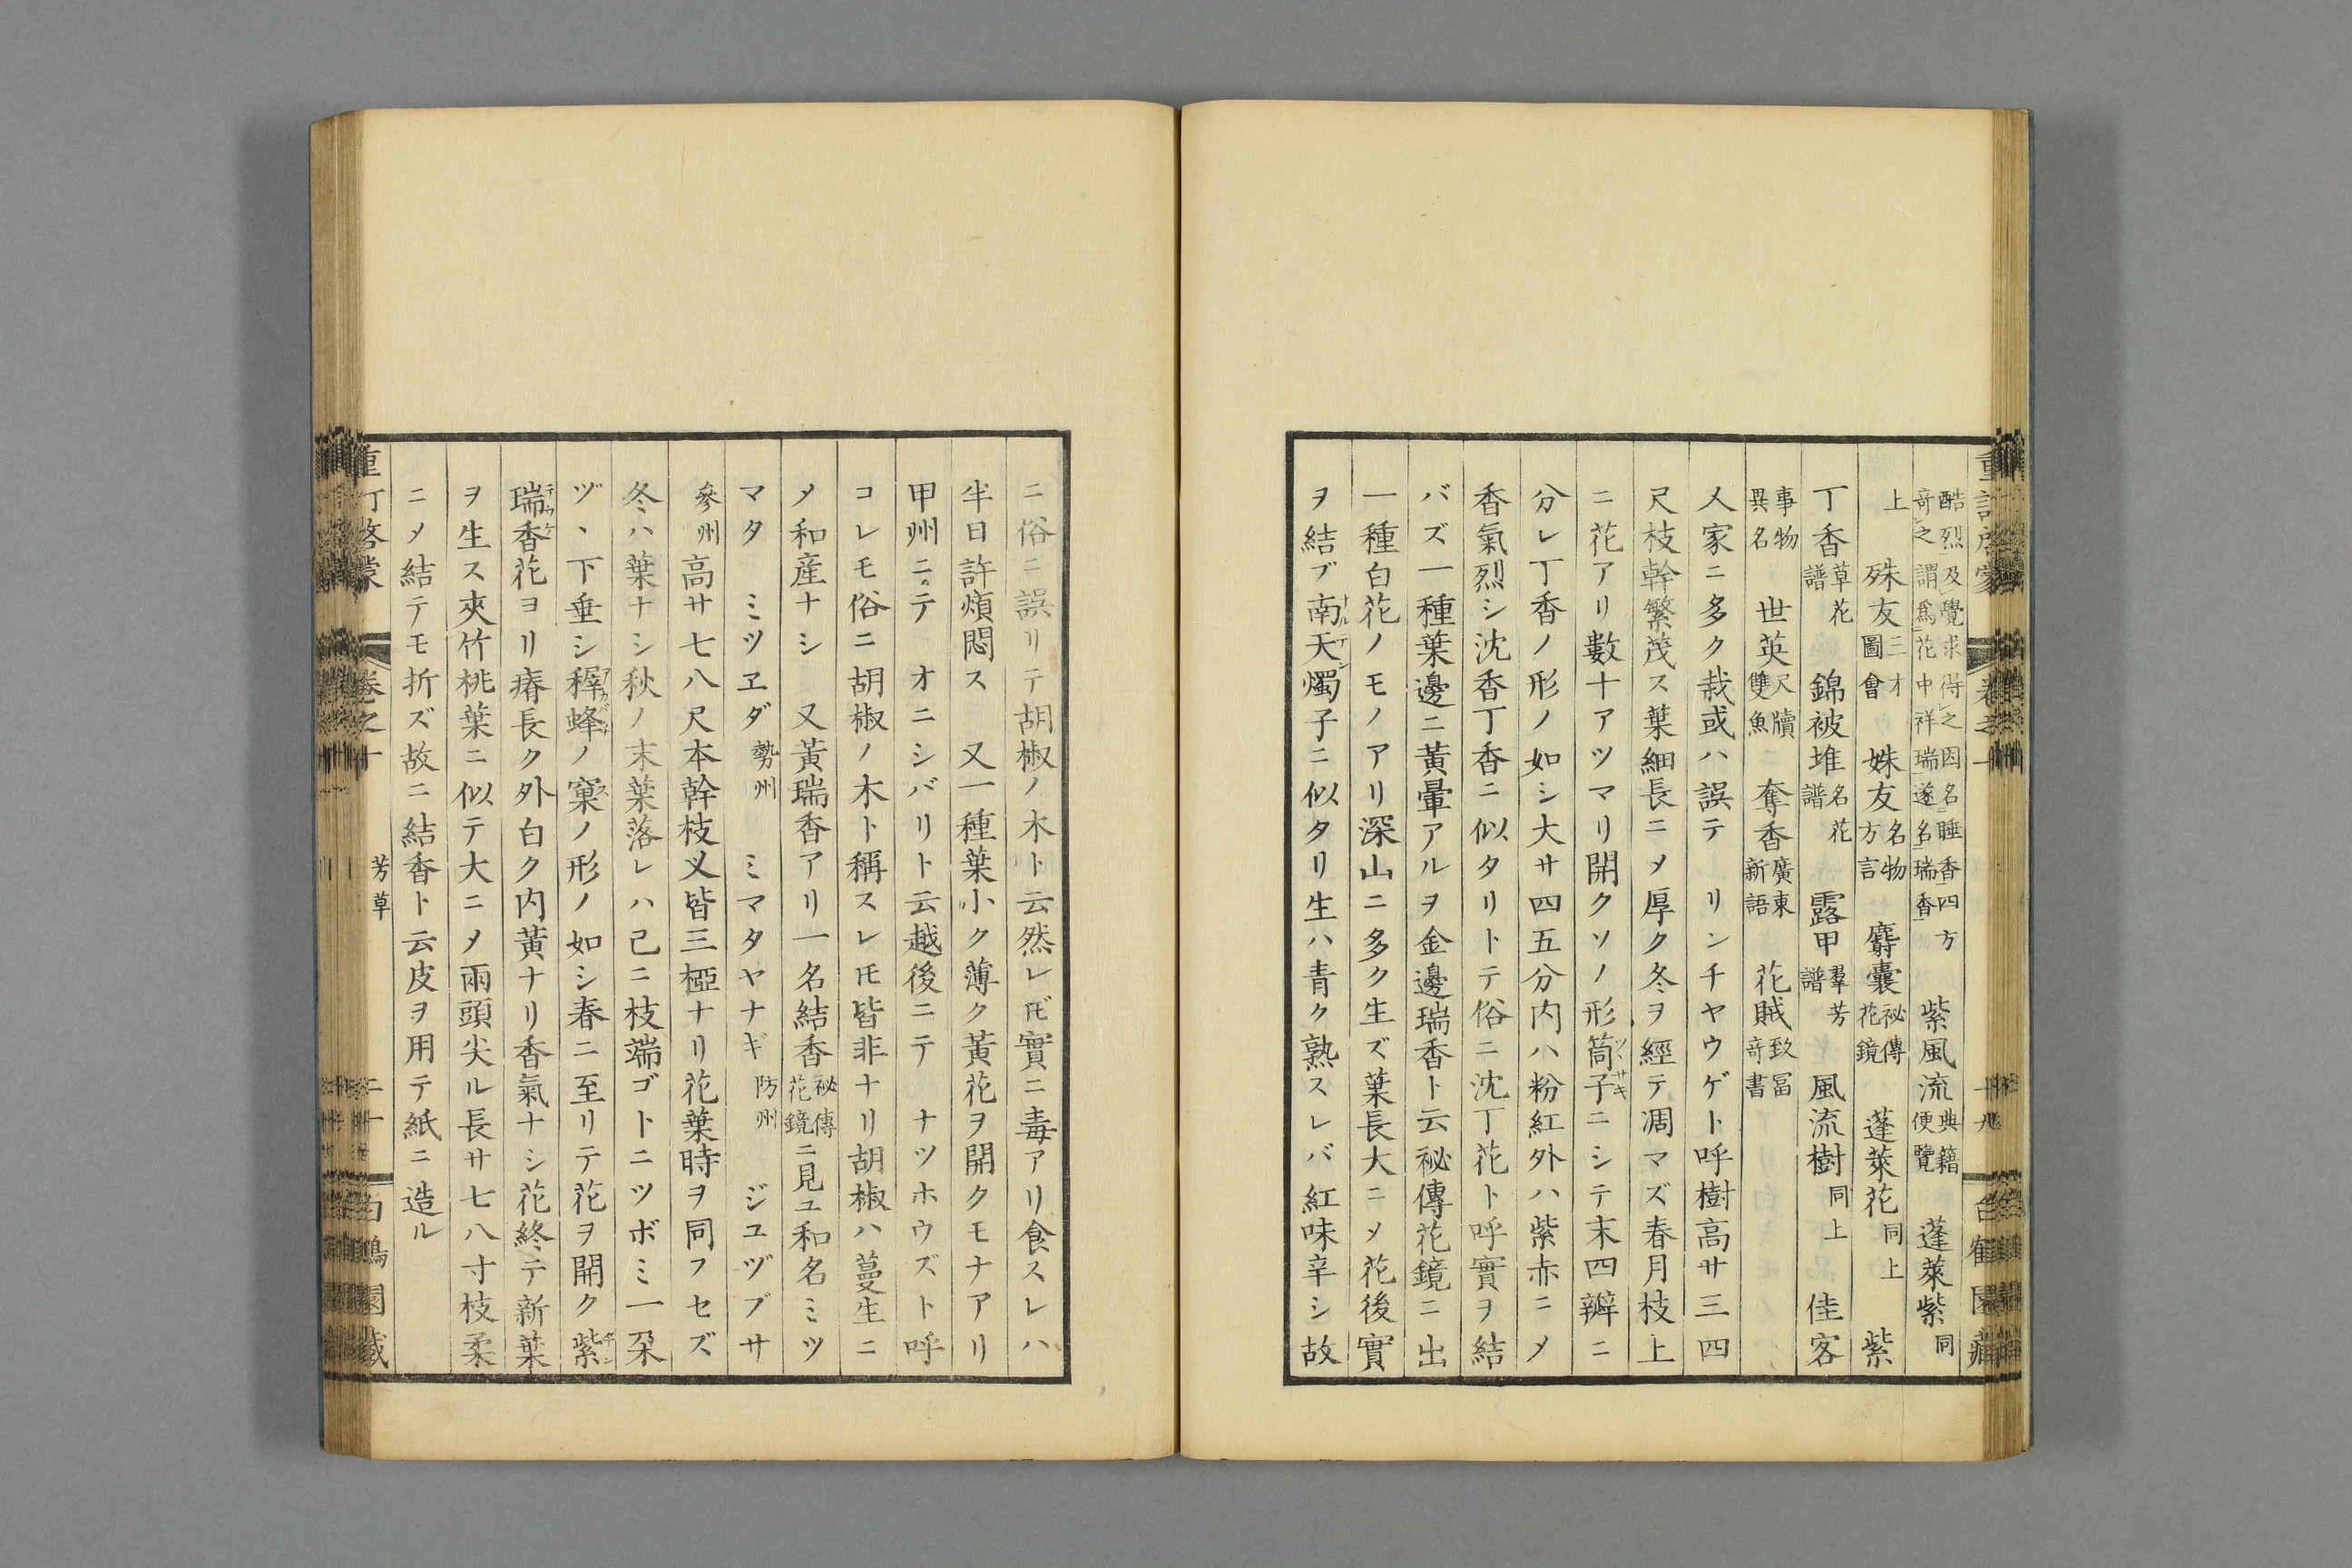 酷烈及覺求得之因名睡香四方
奇之謂爲花中祥瑞遂名瑞香 紫風流 典籍便覽 蓬萊紫 同
上 殊友 三才圖會 姝友 名物方言 麝囊 祕傳花鏡 蓬萊花 同上 紫
丁香 草花譜 錦被堆 名花譜 露甲 羣芳譜 風流樹 同上 佳客
事物異名 世英 尺牘雙魚 奪香 廣東新語 花賊 致冨奇書
人家ニ多ク栽或ハ誤テ リンチヤウゲト呼樹高サ三四
尺枝幹繁茂ス葉細長ニメ厚ク冬ヲ經テ凋マズ春月枝上
ニ花アリ數十アツマリ開クソノ形筒子ニシテ末四瓣ニ
分レ丁香ノ形ノ如シ大サ四五分内ハ粉紅外ハ紫赤ニメ
香氣烈シ沈香丁香ニ似タリトテ俗ニ沈丁花ト呼實ヲ結
バズ一種葉邊ニ黃暈アルヲ金邊瑞香ト云祕傳花鏡ニ出
一種白花ノモノアリ深山ニ多ク生ズ葉長大ニメ花後實
ヲ結ブ南天燭子ニ似タリ生ハ青ク熟スレバ紅味辛シ故
ニ俗ニ誤リテ胡椒ノ木ト云然レ𪜈實ニ毒アリ食スレハ
半日許煩悶ス 又一種葉小ク薄ク黃花ヲ開クモナアリ
甲州ニテ オニシバリト云越後ニテ ナツホウズト呼
コレモ俗ニ胡椒ノ木ト稱スレ𪜈皆非ナリ胡椒ハ蔓生ニ
メ和産ナシ 又黃瑞香アリ一名結香 祕傳花鏡 ニ見ユ和名ミツ
マタ ミツヱダ 勢州 ミマタヤナギ 防州 ジユヅブサ
參州 高サ七八尺本幹枝叉皆三椏ナリ花葉時ヲ同フセズ
冬ハ葉ナシ秋ノ末葉落レハ已ニ枝端ゴトニツボミ一朶
ヅヽ下垂シ稺蜂ノ窠ノ形ノ如シ春ニ至リテ花ヲ開ク紫
瑞香花ヨリ瘠長ク外白ク内黃ナリ香氣ナシ花終テ新葉
ヲ生ス夾竹桃葉ニ似テ大ニメ兩頭尖ル長サ七八寸枝柔
ニメ結テモ折ズ故ニ結香ト云皮ヲ用テ紙ニ造ル
芳草